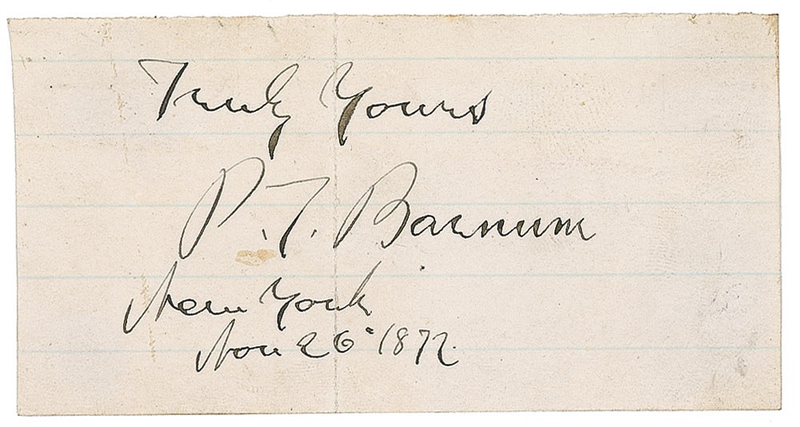 Truly Yours
P. T. Barnum
New York
Nov 26 1872